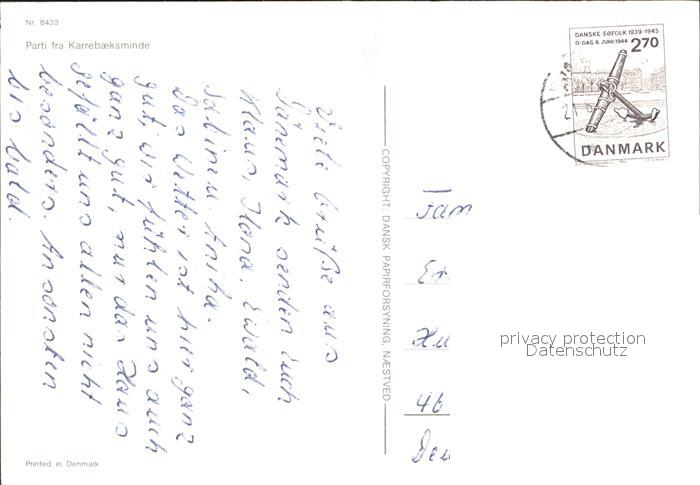 Nr. 8423
Parti fra Karrebæksminde
Viele Grüße aus
Dänemark senden Euch
Klaus, Hans, Ewald,
Sabine u. Anika.
Das Wetter ist hier ganz
gut, wir fühlen uns auch
ganz gut, nur das Haus
gefällt uns allen nicht
besonders. Ansonsten
bis bald.
Printed in Denmark
COPYRIGHT: DANSK PAPIRFORSYNING, NÆSTVED
DANSKE SØFOLK 1939-1945
D-DAG 6. JUNI 1944
270
DANMARK
Fam
Er
46
privacy protection
Datenschutz